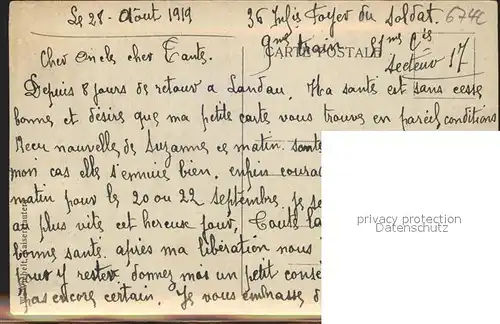 Le 28 Août 1919
36 Foyer du Soldat.
9me train 51me Cie
CARTE POSTALE
Secteur 17
Cher oncle cher Tante.
Depuis 8 jours de retour a Landau. Ma santé est sans cesse
bonne et désire que ma petite carte vous trouve en pareil conditions
Recu nouvelle de Suzanne ce matin. santé
mon cas elle s'ennuie bien. enfin coura
matin pour le 20 ou 22 septembre. je se
au plus vite cet hereux jour. Tante
bonne santé. après ma libération nous
pour y rester donnez moi un petit conse
pas encore certain. Je vous embrasse
privacy protection
Datenschutz